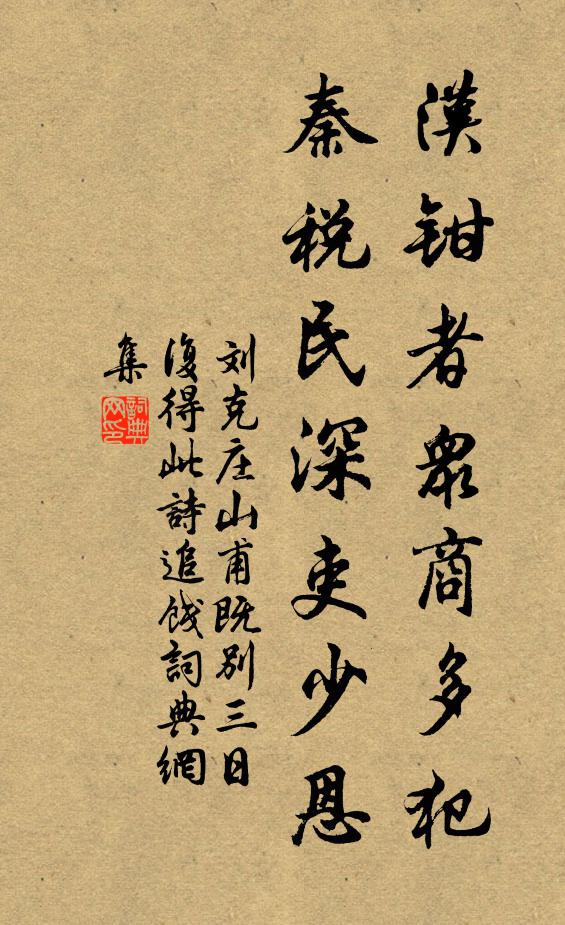 漢鉗者衆商多犯
秦税民深吏少恩
刘克庄山甫既别三日
復得此詩追餞詞典網
集
詞典网印